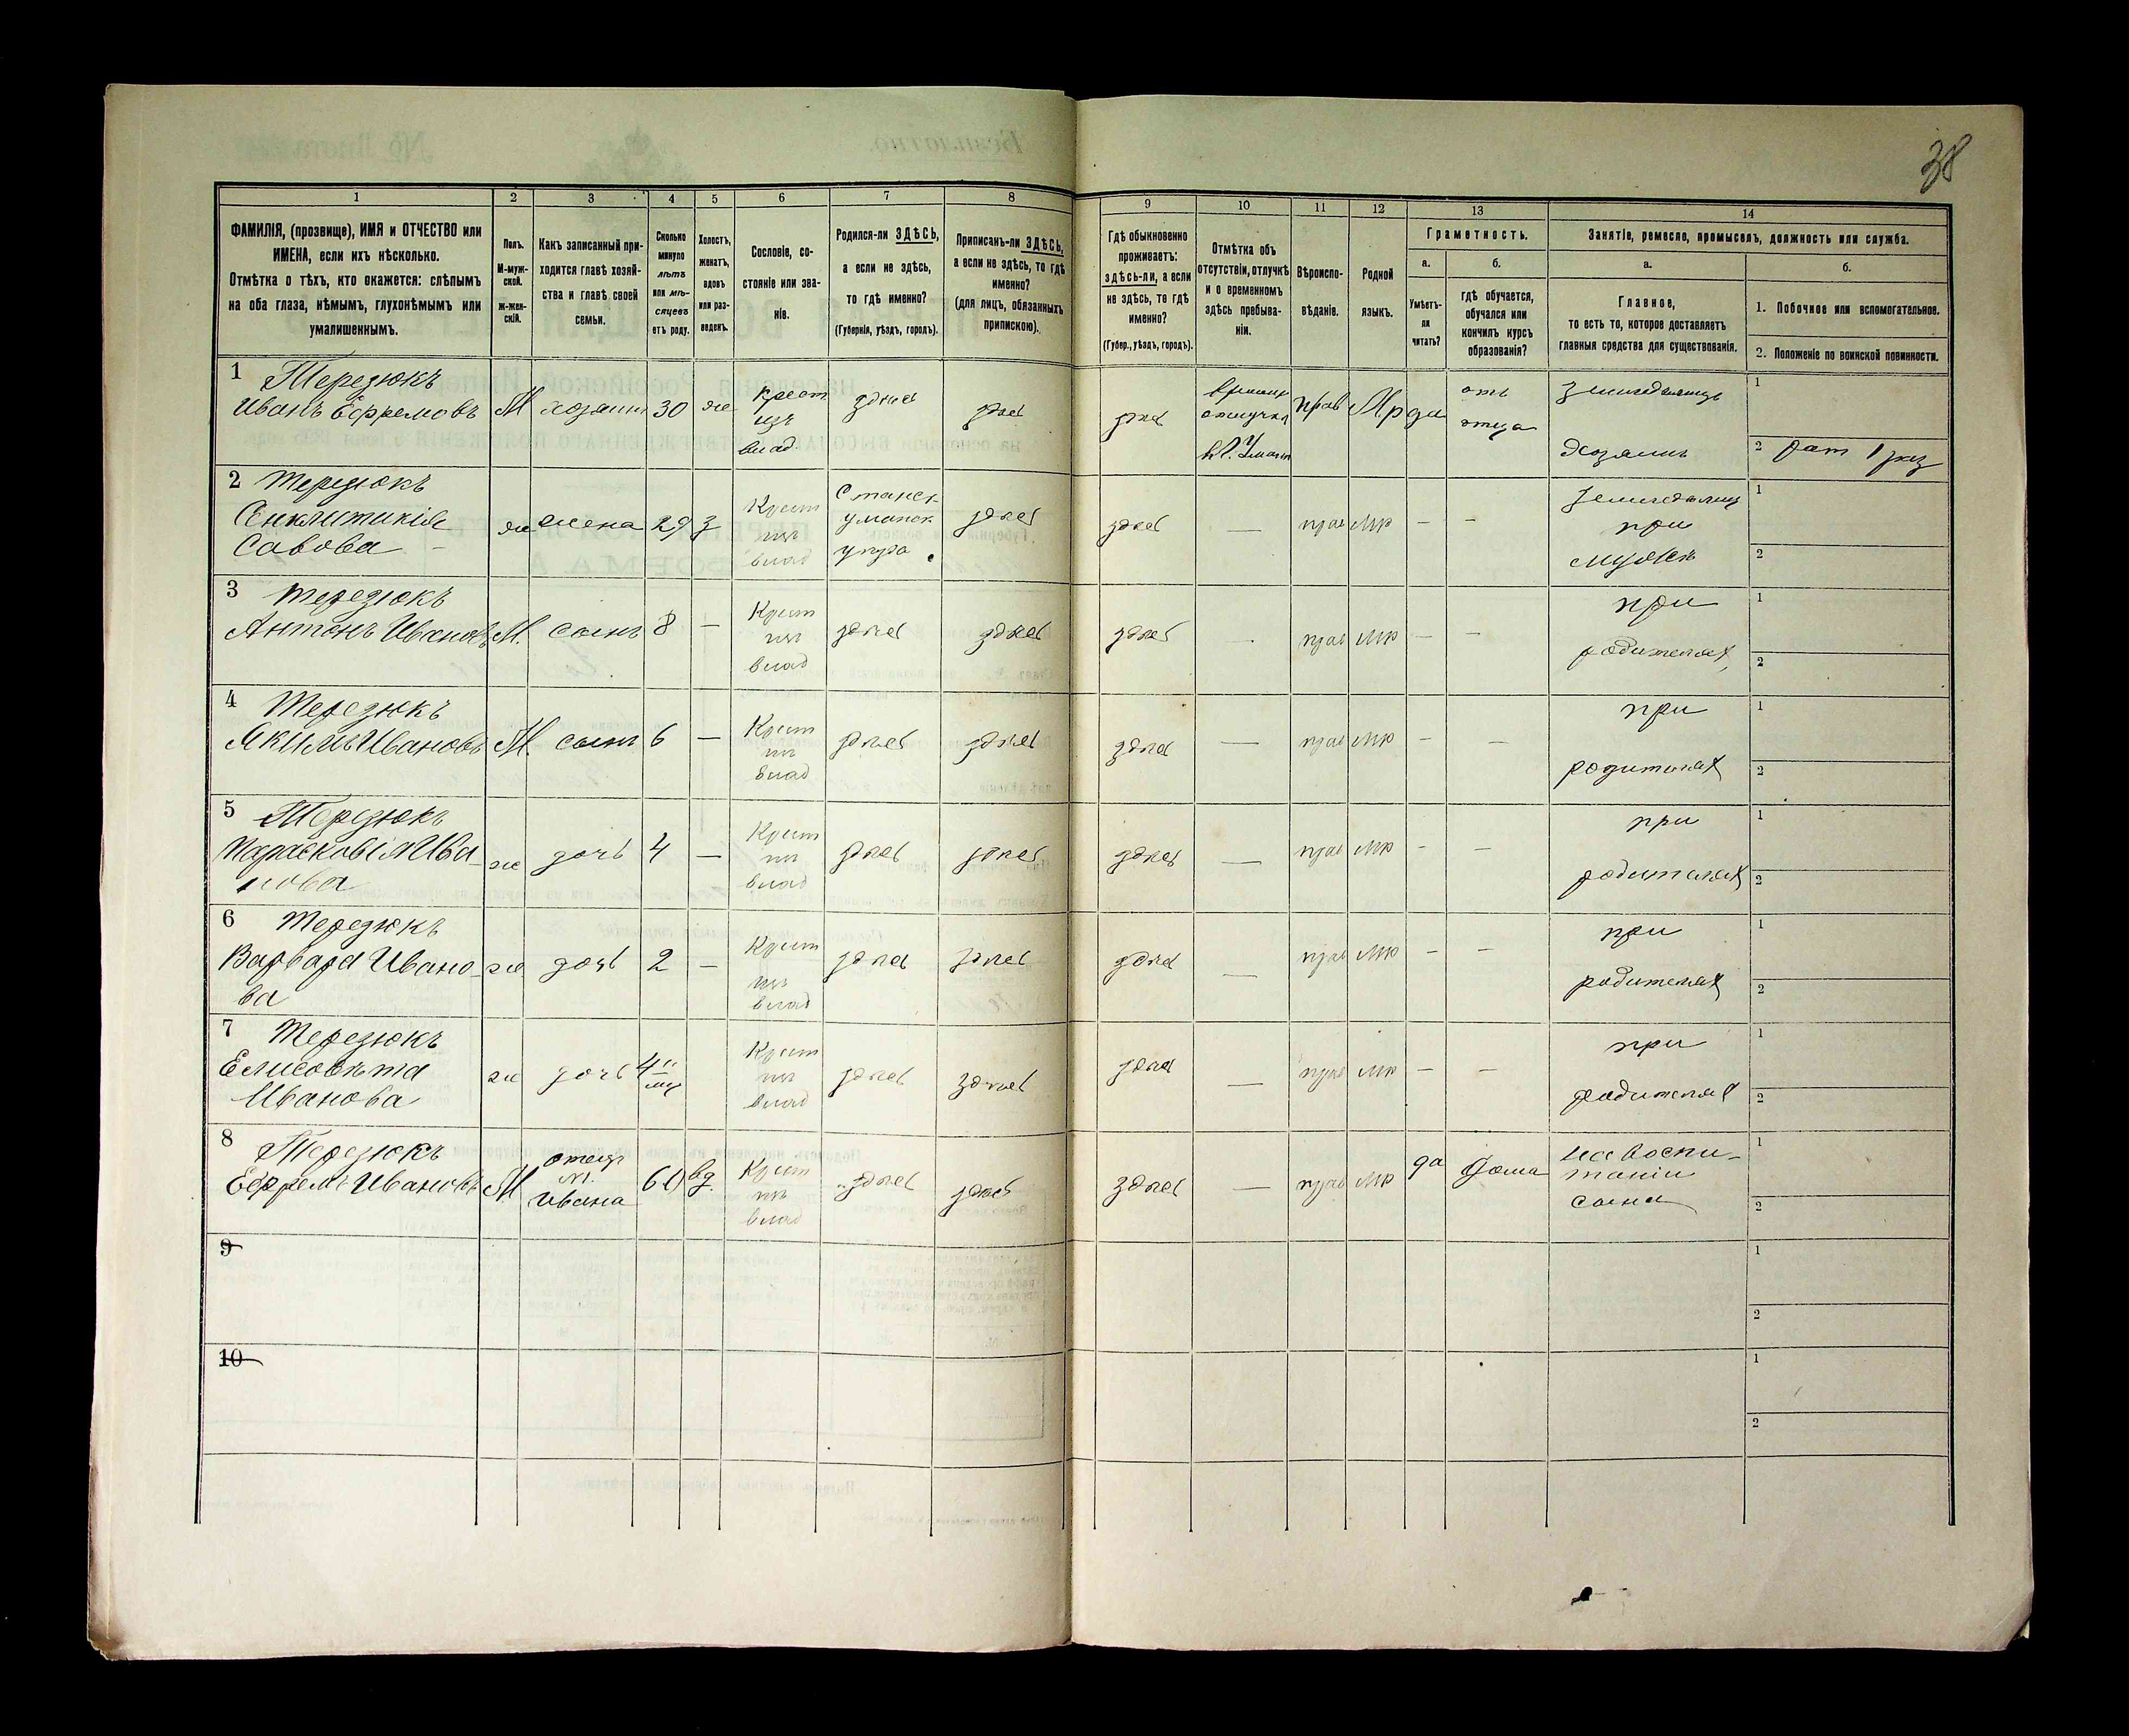 38
1
2
3
4
5
6
7
8
9
10
11
12
13
14
ФАМИЛІЯ, (прозвище), ИМЯ и ОТЧЕСТВО или
ИМЕНА, если ихъ нѣсколько.
Отмѣтка о тѣхъ, кто окажется: слѣпымъ
на оба глаза, нѣмымъ, глухонѣмымъ или
умалишеннымъ.
Полъ.
М-муж-
ской.
ж-жен-
скій.
Какъ записанный при-
ходится главѣ хозяй-
ства и главѣ своей
семьи.
Сколько
минуло
лѣтъ
или мѣ-
сяцевъ
отъ роду.
Холостъ,
женатъ,
вдовъ
или раз-
веденъ.
Сословіе, со-
стояніе или зва-
ніе.
Родился-ли ЗДѢСЬ,
а если не здѣсь,
то гдѣ именно?
(Губернія, уѣздъ, городъ).
Приписанъ-ли ЗДѢСЬ,
а если не здѣсь, то гдѣ
именно?
(для лицъ, обязанныхъ
припискою).
Гдѣ обыкновенно
проживаетъ:
здѣсь-ли, а если
не здѣсь, то гдѣ
именно?
(Губер., уѣздъ, городъ).
Отмѣтка объ
отсутствіи, отлучкѣ
и о временномъ
здѣсь пребыва-
ніи.
Вѣроиспо-
вѣданіе.
Родной
языкъ.
Грамотность.
а.
Умѣетъ-
ли
читать?
б.
гдѣ обучается,
обучался или
кончилъ курсъ
образованія?
Занятіе, ремесло, промыселъ, должность или служба.
а.
Главное,
то есть то, которое доставляетъ
главныя средства для существованія.
б.
1. Побочное или вспомогательное.
2. Положеніе по воинской повинности.
1 Терезюкъ
Иванъ Ефремовъ
М
хозяинъ
30
же
Крест
изъ
влад.
здѣсь
здѣсь
здѣсь
отлучка
прав
Мр
да
отъ
отца
Хозяинъ
1
2
2 Терезюкъ
Синклитикія
Савова
же
жена
29
з
Крест
изъ
влад
уманск
здѣсь
здѣсь
—
прав
Мр
–
–
при
мужѣ
1
2
3 Терезюкъ
Антонъ Ивановъ
М.
сынъ
8
—
Крест
изъ
влад
здѣсь
здѣсь
здѣсь
прав
Мр
–
–
при
родителях
1
2
4 Терезюкъ
Якимъ Ивановъ
М
сынъ
6
—
Крест
изъ
влад
здѣсь
здѣсь
здѣсь
—
прав
Мр
–
–
при
родителях
1
2
5 Терезюкъ
Парасковія Ива-
нова
же
дочь
4
—
Крест
изъ
влад
здѣсь
здѣсь
здѣсь
—
прав
Мр
–
–
при
родителях
1
2
6 Терезюкъ
Варвара Ивано-
ва
же
дочь
2
—
Крест
изъ
влад
здѣсь
здѣсь
здѣсь
—
прав
Мр
–
–
при
родителях
1
2
7 Терезюкъ
Елисовѣта
Иванова
же
дочь
4
мц
Крест
изъ
влад
здѣсь
здѣсь
здѣсь
—
прав
Мр
–
–
при
родителях
1
2
8 Терезюкъ
Ефремъ Ивановъ
М
отецъ
Ивана
60
вд.
Крест
изъ
влад
здѣсь
здѣсь
здѣсь
—
прав
Мр
да
Дома
на воспи-
таніи
сына
1
2
9
1
2
10
1
2